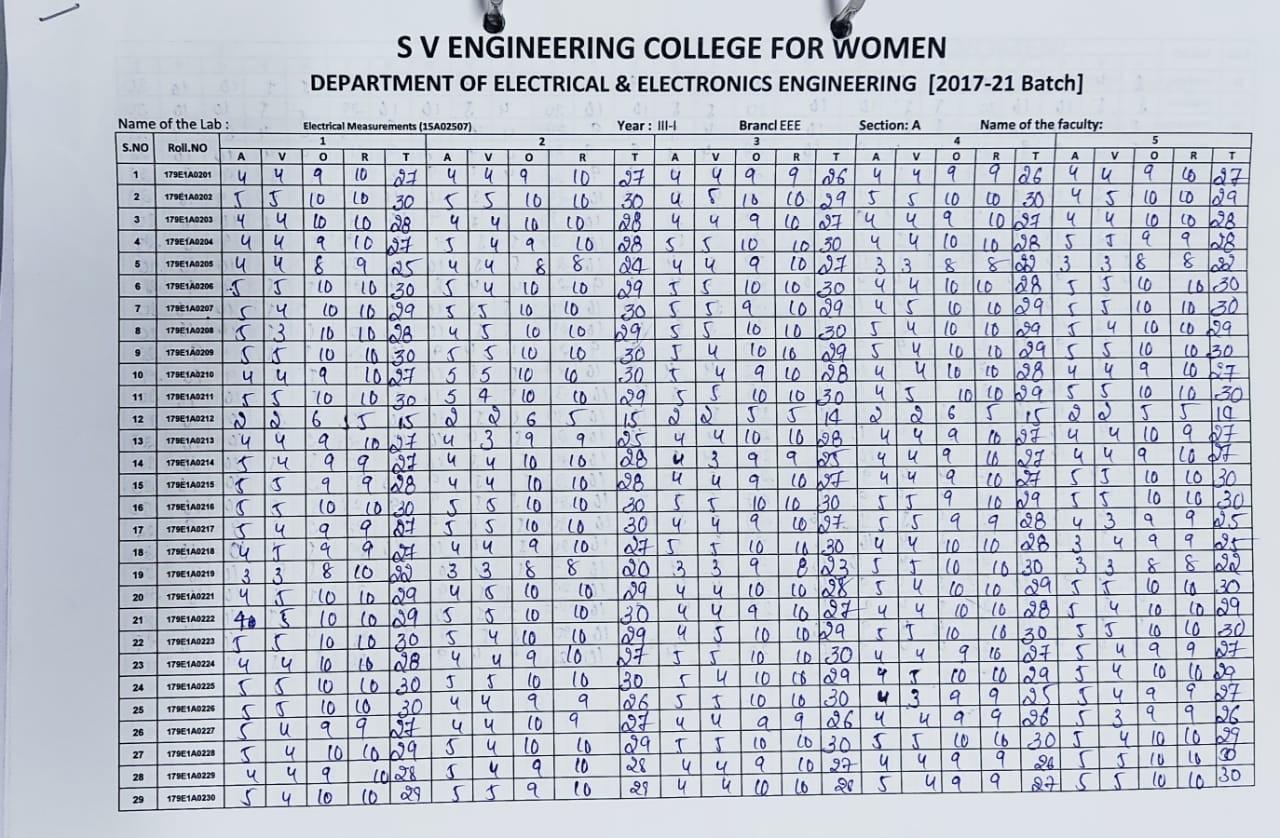 S V ENGINEERING COLLEGE FOR WOMEN
DEPARTMENT OF ELECTRICAL & ELECTRONICS ENGINEERING [2017-21 Batch]
Name of the Lab : Electrical Measurements (15A02507) Year : III-I Brancl EEE Section: A Name of the faculty:
S.NO Roll.NO 1 2 3 4 5
A V O R T A V O R T A V O R T A V O R T A V O R T
1 179E1A0201 4 4 9 10 27 4 4 9 10 27 4 4 9 9 26 4 4 9 9 26 4 4 9 10 27
2 179E1A0202 5 5 10 10 30 5 5 10 10 30 4 5 10 10 29 5 5 10 10 30 4 5 10 10 29
3 179E1A0203 4 4 10 10 28 4 4 10 10 28 4 4 9 10 27 4 4 9 10 27 4 4 10 10 28
4 179E1A0204 4 4 9 10 27 5 4 9 10 28 5 5 10 10 30 4 4 10 10 28 5 5 9 9 28
5 179E1A0205 4 4 8 9 25 4 4 8 8 24 4 4 9 10 27 3 3 8 8 22 3 3 8 8 22
6 179E1A0206 5 5 10 10 30 5 4 10 10 29 5 5 10 10 30 4 4 10 10 28 5 5 10 10 30
7 179E1A0207 5 4 10 10 29 5 5 10 10 30 5 5 9 10 29 4 5 10 10 29 5 5 10 10 30
8 179E1A0208 5 3 10 10 28 4 5 10 10 29 5 5 10 10 30 5 4 10 10 29 5 4 10 10 29
9 179E1A0209 5 5 10 10 30 5 5 10 10 30 5 4 10 10 29 5 4 10 10 29 5 5 10 10 30
10 179E1A0210 4 4 9 10 27 5 5 10 10 30 5 4 9 10 28 4 4 10 10 28 4 4 9 10 27
11 179E1A0211 5 5 10 10 30 5 4 10 10 29 5 5 10 10 30 4 5 10 10 29 5 5 10 10 30
12 179E1A0212 2 2 6 5 15 2 2 6 5 15 2 2 5 5 14 2 2 6 5 15 2 2 5 5 14
13 179E1A0213 4 4 9 10 27 4 3 9 9 25 4 4 10 10 28 4 4 9 10 27 4 4 10 9 27
14 179E1A0214 5 4 9 9 27 4 4 10 10 28 4 3 9 9 25 4 4 9 10 27 4 4 9 10 27
15 179E1A0215 5 5 9 9 28 4 4 10 10 28 4 4 9 10 27 4 4 9 10 27 5 5 10 10 30
16 179E1A0216 5 5 10 10 30 5 5 10 10 30 5 5 10 10 30 5 5 9 10 29 5 5 10 10 30
17 179E1A0217 5 4 9 9 27 5 5 10 10 30 4 4 9 10 27 5 5 9 9 28 4 3 9 9 25
18 179E1A0218 4 5 9 9 27 4 4 9 10 27 5 5 10 10 30 4 4 10 10 28 3 4 9 9 25
19 179E1A0219 3 3 8 10 22 3 3 8 8 20 3 3 9 8 23 5 5 10 10 30 3 3 8 8 22
20 179E1A0221 4 5 10 10 29 4 5 10 10 29 4 4 10 10 28 5 4 10 10 29 5 5 10 10 30
21 179E1A0222 4 5 10 10 29 5 5 10 10 30 4 4 9 10 27 4 4 10 10 28 5 4 10 10 29
22 179E1A0223 5 5 10 10 30 5 4 10 10 29 4 5 10 10 29 5 5 10 10 30 5 5 10 10 30
23 179E1A0224 4 4 10 10 28 4 4 9 10 27 5 5 10 10 30 4 4 9 10 27 5 4 9 9 27
24 179E1A0225 5 5 10 10 30 5 5 10 10 30 5 4 10 10 29 4 5 10 10 29 5 4 10 10 29
25 179E1A0226 5 5 10 10 30 4 4 9 9 26 5 5 10 10 30 4 3 9 9 25 5 4 9 9 27
26 179E1A0227 5 4 9 9 27 4 4 10 9 27 4 4 9 9 26 4 4 9 9 26 5 3 9 9 26
27 179E1A0228 5 4 10 10 29 5 4 10 10 29 5 5 10 10 30 5 5 10 10 30 5 4 10 10 29
28 179E1A0229 4 4 9 10 28 5 4 9 10 28 4 4 9 10 27 4 4 9 9 26 5 5 10 10 30
29 179E1A0230 5 4 10 10 29 5 5 9 10 29 4 4 10 10 28 5 4 9 9 27 5 5 10 10 30